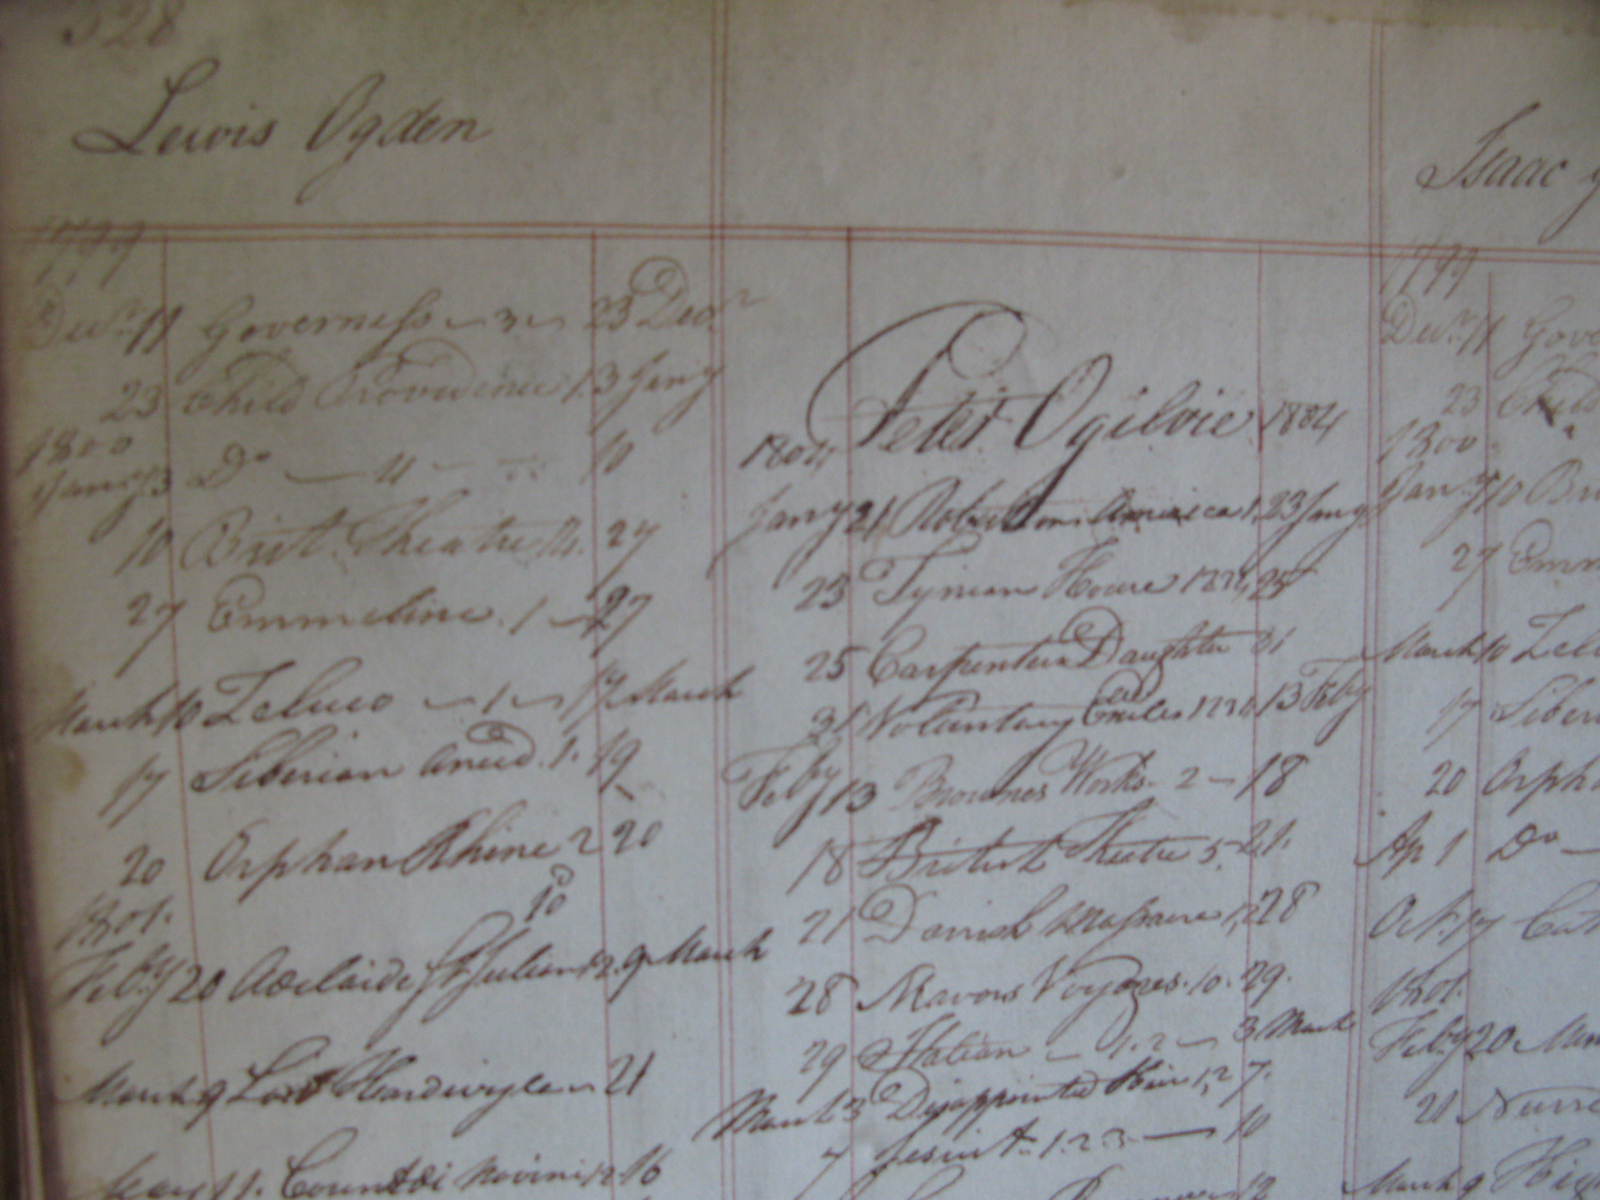 328
Lewis Ogden
1799
Decr. 11 Governess 3 23 Decr
23 Child Providence 1. 3 Jany
1800
Jany 3 Do 4 10
10 Brit. Theatre 14. 27
27 Emmeline. 1 27
March 10 Zeluco 1 17 March
17 Siberian Anecd. 1. 19
20 Orphan Rhine 2 20
10
1801.
Feby 20 Adelaide St Julian 12. 9 March
March 9 Lord 21
Count di 12 16
1804 Peter Ogilvie 1804
Jany 21 Robertsons America 1. 23 Jany
23 Tynian 25
25 Carpenters Daughter 31
31 Voluntary Exile 13 Feby
Feby 13 Brownes Works. 2 18
18 British Theatre 5. 21.
21 Danish Massacre 1,2 28
28 Mavors Voyages. 10. 29.
29 Italian 1.2 3 March
March 3 Disappointed Heir 1,2 7.
7 Jesuit 1.2 3 10
12
Isaac
1799
Decr. 11 Gove
23 Child
1800
Jany 10 Bri
27 Emm
March 10 Zel
17 Siberi
20 Orpha
Ap 1 Do
Oct. 17
1801.
Feby 20
21
March 9